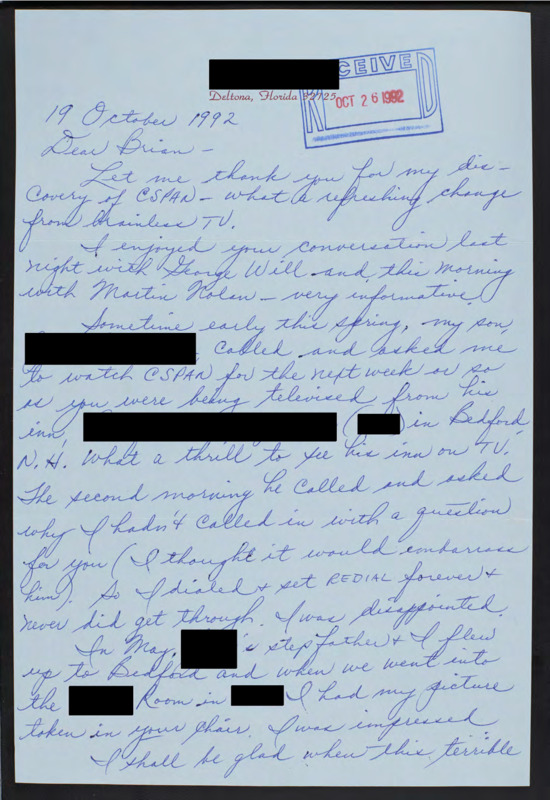 Deltona, Florida 32725
RECEIVED
OCT 26 1992
19 October 1992
Dear Brian -
Let me thank you for my dis-
covery of CSPAN - what a refreshing change
from brainless TV.
I enjoyed your conversation last
night with George Will and this morning
with Martin Nolan - very informative.
Sometime early this spring, my son,
, called and asked me
to watch CSPAN for the next week or so
as you were being televised from his
inn, ( ) in Bedford
N.H. What a thrill to see his inn on TV.
The second morning he called and asked
why I hadn't called in with a question
for you (I thought it would embarrass
him). So I dialed & set REDIAL forever &
never did get through. I was disappointed.
In May, 's stepfather & I flew
up to Bedford and when we went into
the Room in I had my picture
taken in your chair. I was impressed
I shall be glad when this terrible